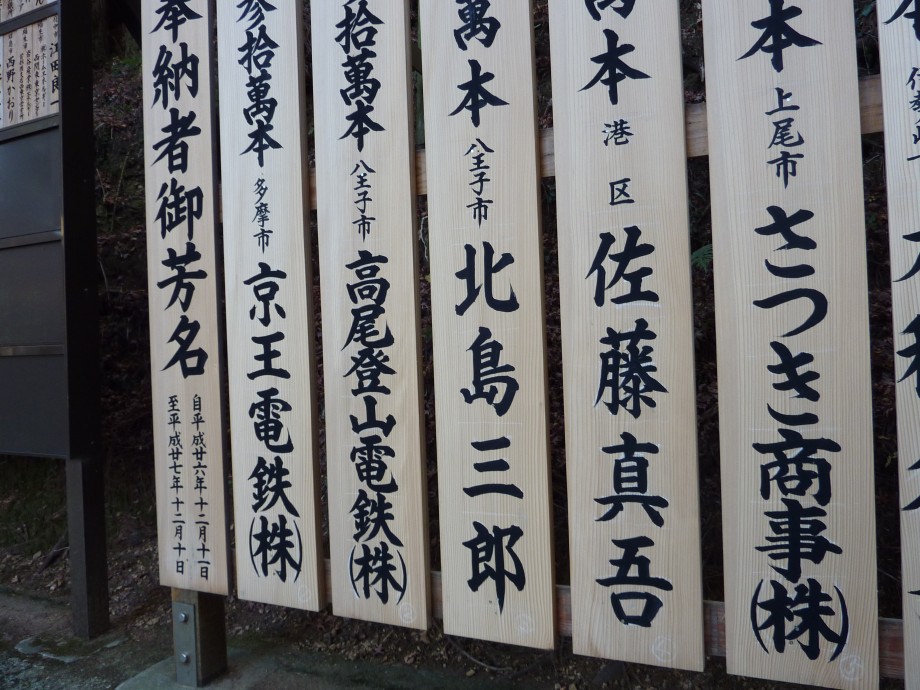 奉納者御芳名
自平成廿六年十二月十一日
至平成廿七年十二月十日
参拾萬本 多摩市 京王電鉄(株)
拾萬本 八王子市 高尾登山電鉄(株)
萬本 八王子市 北島三郎
萬本 港区 佐藤真吾
本 上尾市 さつき商事(株)
西野かおり